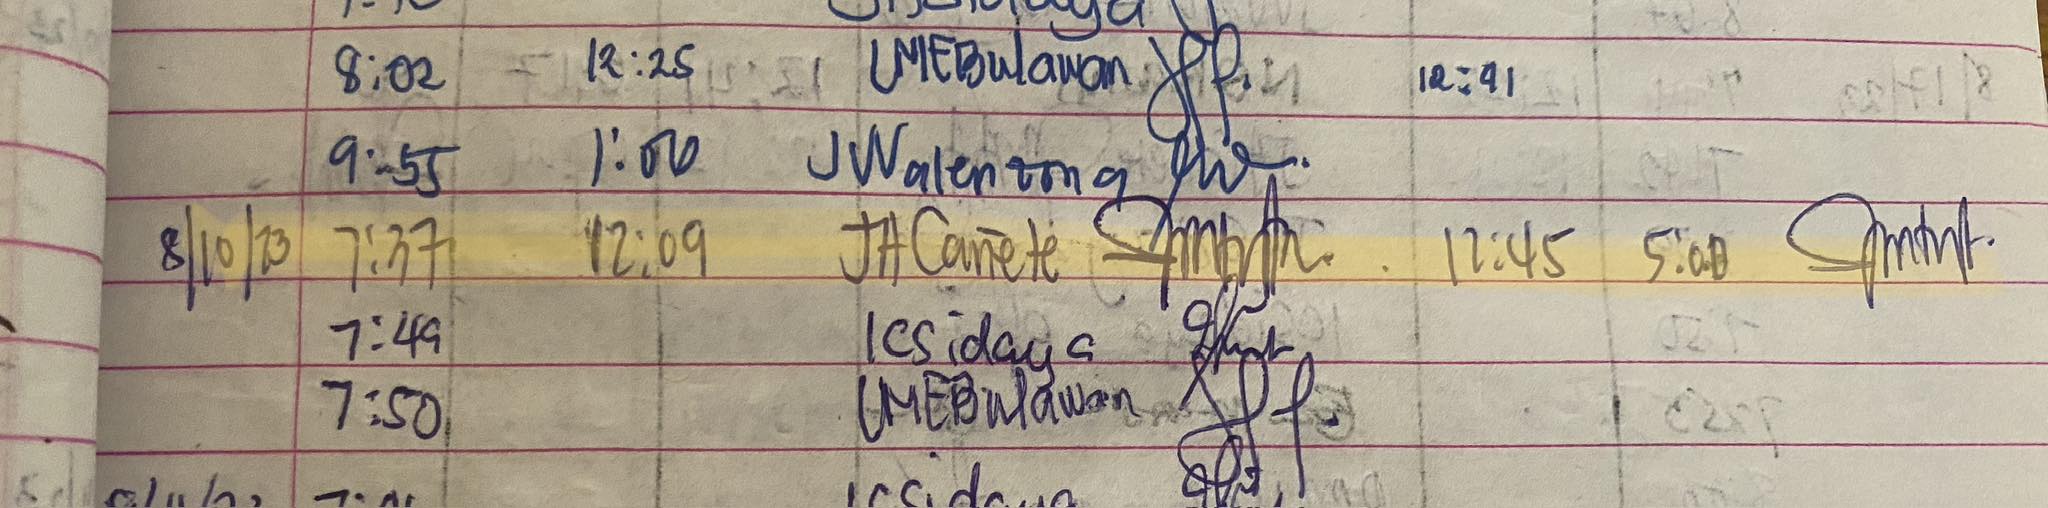 8:02 12:25 UMEBulawan 12:41
9:55 1:00 JWalenzona
8/10/23 7:37 12:09 JACañete 12:45 5:00
7:49 ICSidaya
7:50 UMEBulawan
ICSidaya